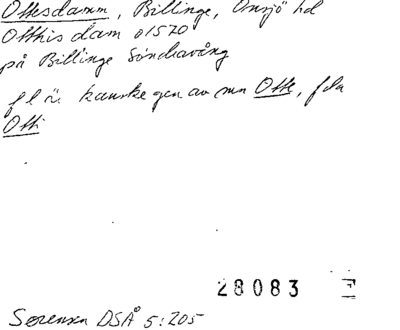 Ottesdamm, Billinge, Onsjö hd
Otthis dam o1570
på Billinge Söndravång
fl är kanske gen av mn Otte, fda
Otti
28083
Sørensen DSÅ 5:205